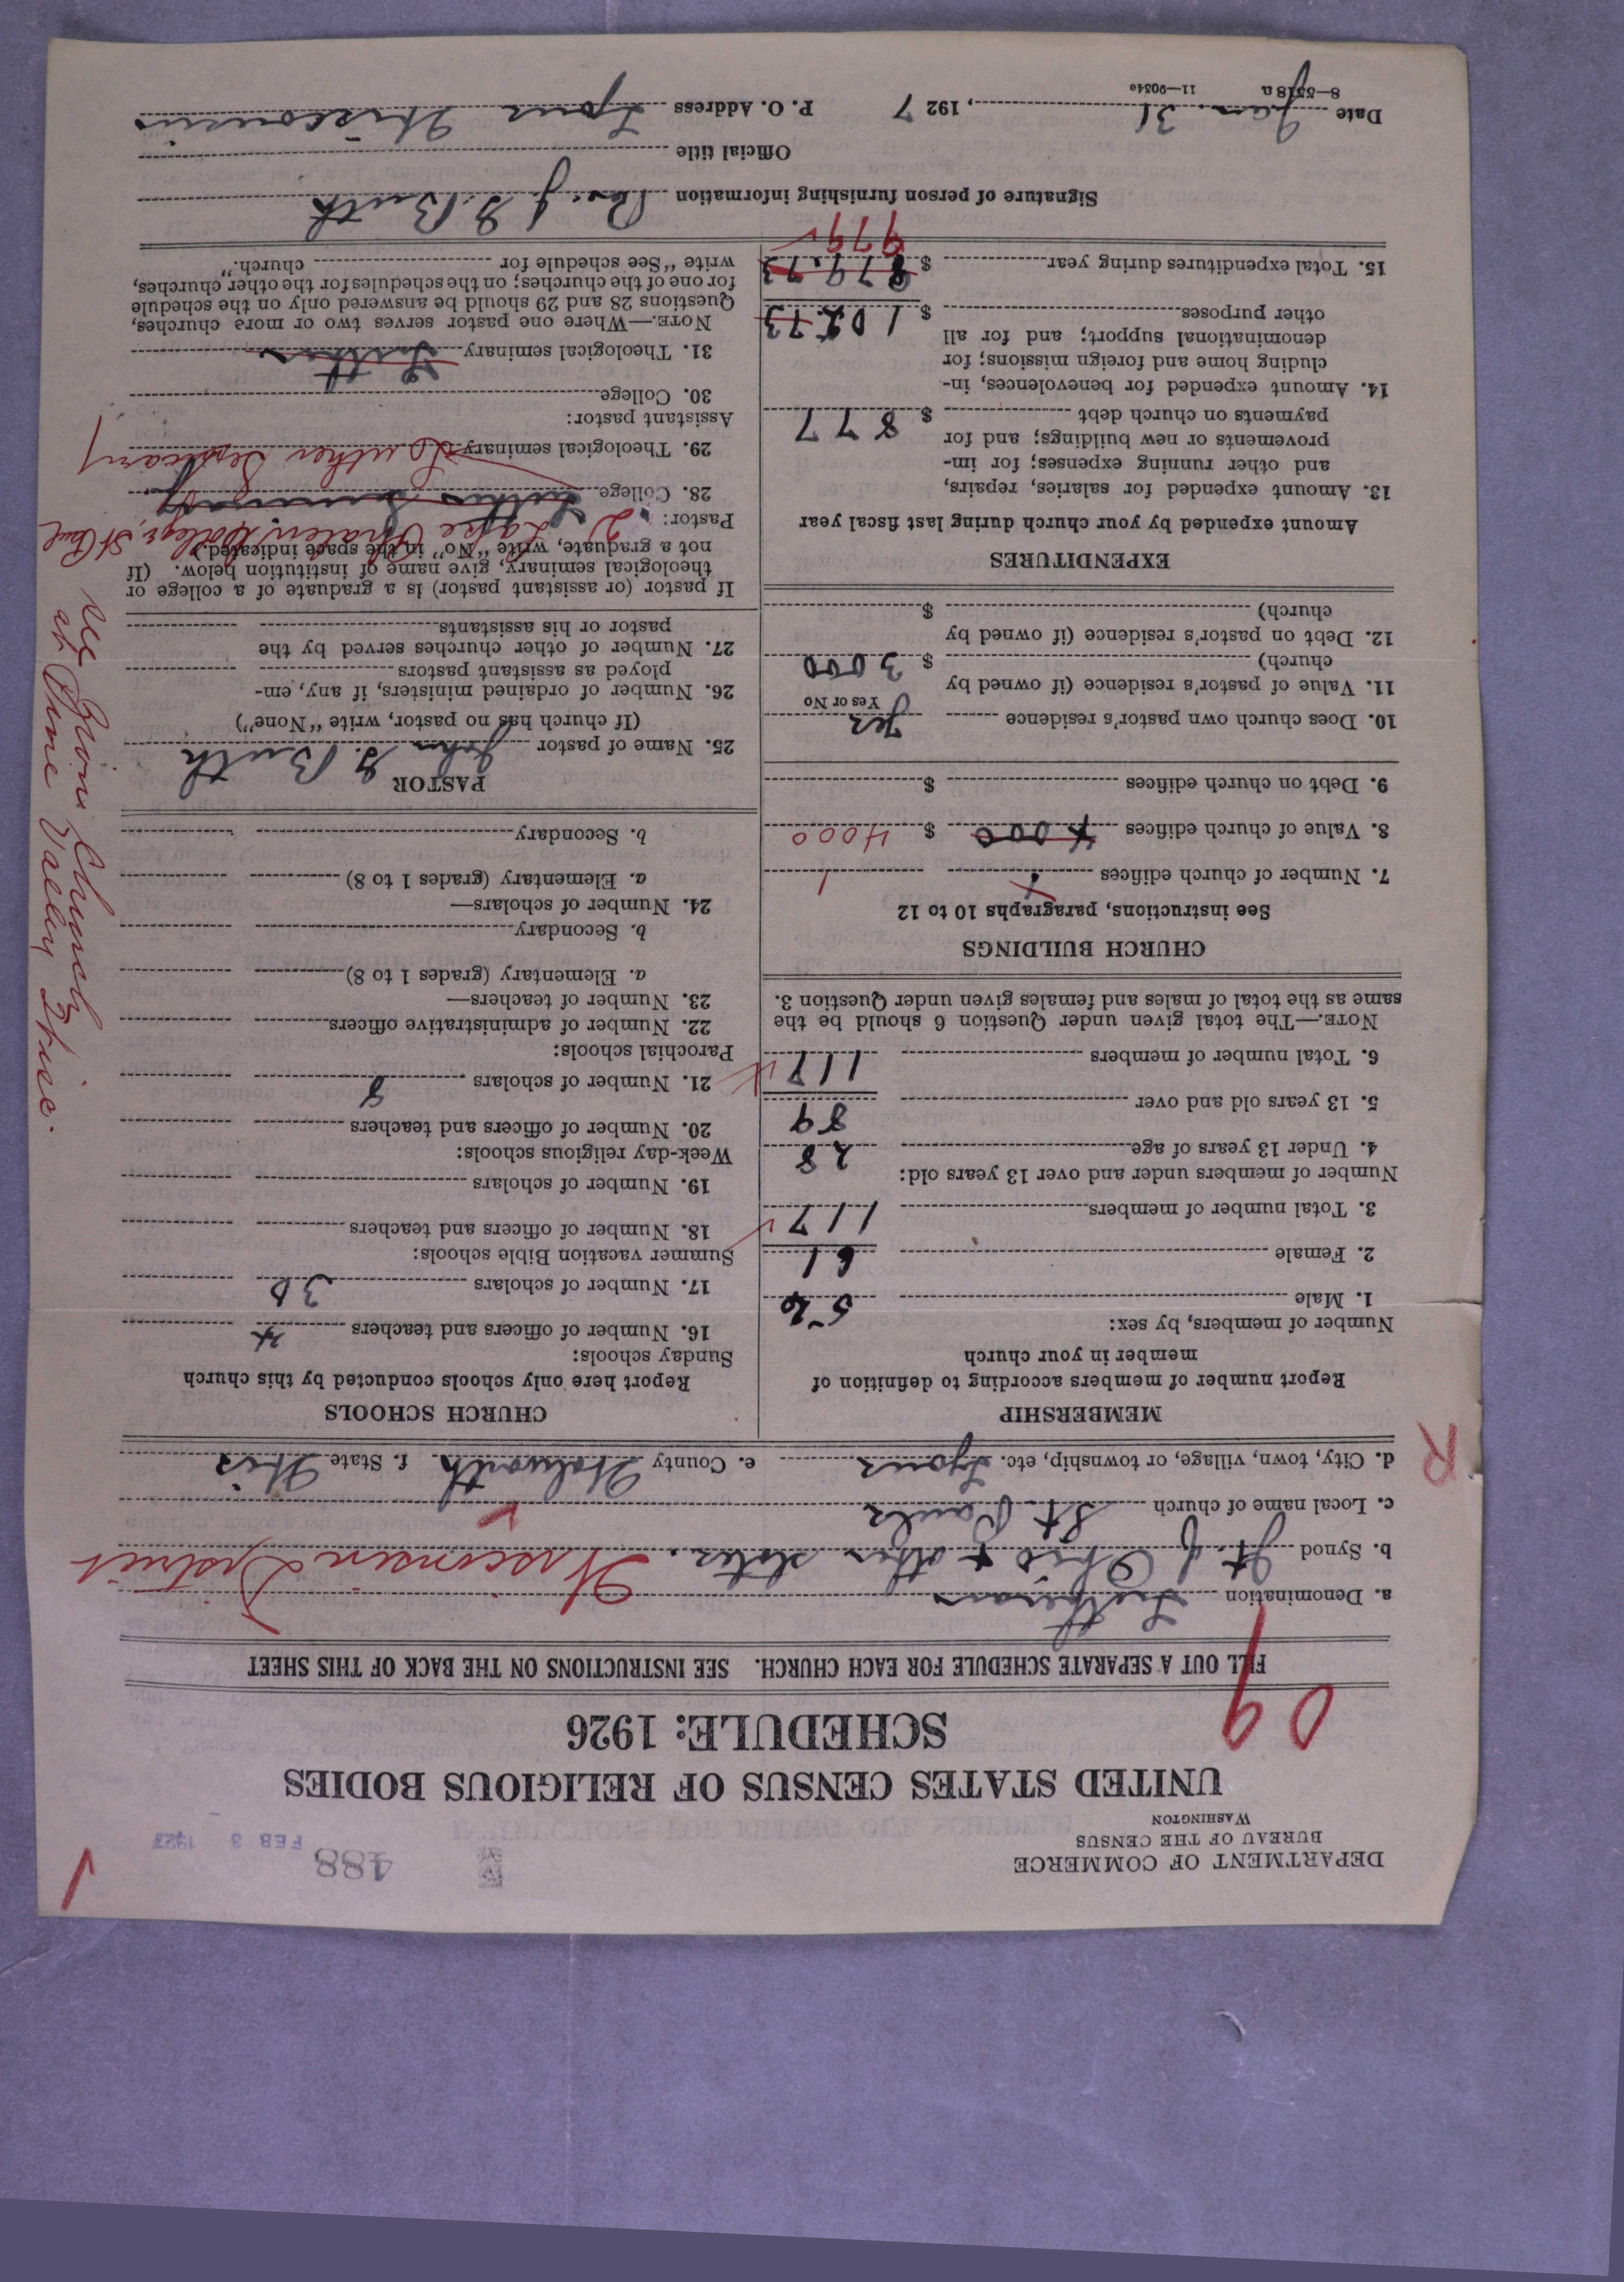 DEPARTMENT OF COMMERCE
BUREAU OF THE CENSUS
WASHINGTON
488
FEB 3 1927
UNITED STATES CENSUS OF RELIGIOUS BODIES
SCHEDULE: 1926
09
FILL OUT A SEPARATE SCHEDULE FOR EACH CHURCH. SEE INSTRUCTIONS ON THE BACK OF THIS SHEET
a. Denomination Lutheran
b. Synod Jt. of Ohio + other states. Wisconsin District
c. Local name of church St. Pauls
d. City, town, village, or township, etc. Lyons e. County Walworth f. State Wis
R
MEMBERSHIP
Report number of members according to definition of
member in your church
Number of members, by sex:
1. Male 56
2. Female 61
3. Total number of members 117
Number of members under and over 13 years old:
4. Under 13 years of age 28
5. 13 years old and over 89
6. Total number of members 117
NOTE.—The total given under Question 6 should be the
same as the total of males and females given under Question 3.
CHURCH BUILDINGS
See instructions, paragraphs 10 to 12
7. Number of church edifices 1 1
8. Value of church edifices 4000 $ 4000
9. Debt on church edifices $
10. Does church own pastor's residence Yes
Yes or No
11. Value of pastor's residence (if owned by
church) $ 3000
12. Debt on pastor's residence (if owned by
church) $
EXPENDITURES
Amount expended by your church during last fiscal year
13. Amount expended for salaries, repairs,
and other running expenses; for im-
provements or new buildings; and for
payments on church debt $ 877
14. Amount expended for benevolences, in-
cluding home and foreign missions; for
denominational support; and for all
other purposes $ 102.73
15. Total expenditures during year $ 879.73
979
CHURCH SCHOOLS
Report here only schools conducted by this church
Sunday schools:
16. Number of officers and teachers 4
17. Number of scholars 30
Summer vacation Bible schools:
18. Number of officers and teachers
19. Number of scholars
Week-day religious schools:
20. Number of officers and teachers
21. Number of scholars 8
Parochial schools:
22. Number of administrative officers
23. Number of teachers—
a. Elementary (grades 1 to 8)
b. Secondary
24. Number of scholars—
a. Elementary (grades 1 to 8)
b. Secondary
PASTOR
25. Name of pastor John G. Buth
(If church has no pastor, write "None")
26. Number of ordained ministers, if any, em-
ployed as assistant pastors
27. Number of other churches served by the
pastor or his assistants
If pastor (or assistant pastor) is a graduate of a college or
theological seminary, give name of institution below. (If
not a graduate, write "No" in the space indicated.)
Pastor: Lake Phalen College, St Paul
28. College Luther Seminary
29. Theological seminary Luther Seminary
Assistant pastor:
30. College
31. Theological seminary Luther
NOTE.—Where one pastor serves two or more churches,
Questions 28 and 29 should be answered only on the schedule
for one of the churches; on the schedules for the other churches,
write "See schedule for church."
Zion Church
at Pine Valley Wisc.
Signature of person furnishing information Rev. J. G. Buth
Official title
Date Jan. 31, 1927 P. O. Address Lyons Wisconsin
8—5518 a 11—9034